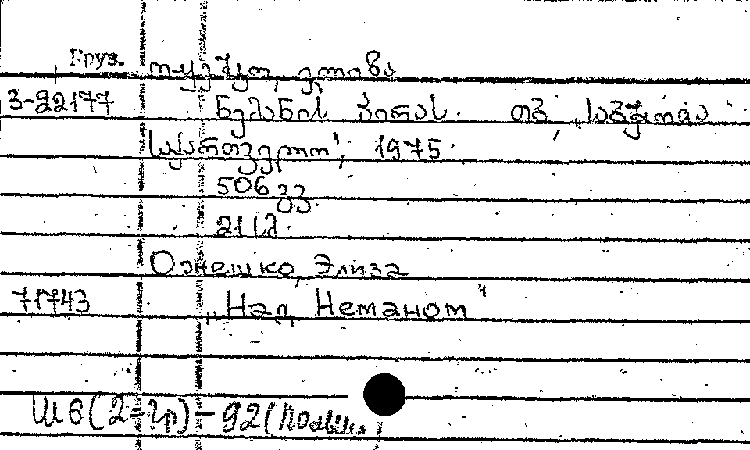 Груз.
ოჟეშკო, ელიზა
3-22177 ნემანის პირას. თბ., „საბჭოთა
საქართველო", 1975.
506 გვ.
21 სმ.
Ожешко, Элиза
71743 „Над Неманом"
И6(2=гр)-92